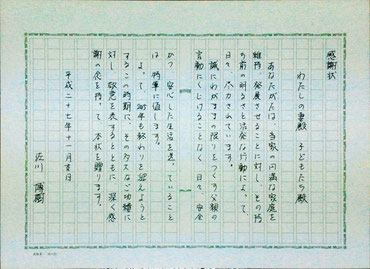 感謝状
わたしの妻殿 子どもたち殿
あなたがたは、当家の円満な家庭を
維持、発展させることに対し、その持
ち前の明るさと活発な行動によって、
日々、尽力されています。
誠にわがままの限りをつくす父親の
言動にくじけることなく、日々、安全
かつ、安心した生活を送っていること
は、称賛に値します。
よって、今年も終わりを迎えようと
するこの時期に、その多大なご功績に
対し、敬意を表するとともに、深く感
謝の念を持って、本状を贈ります。
平成二十七年十一月吉日
佐川